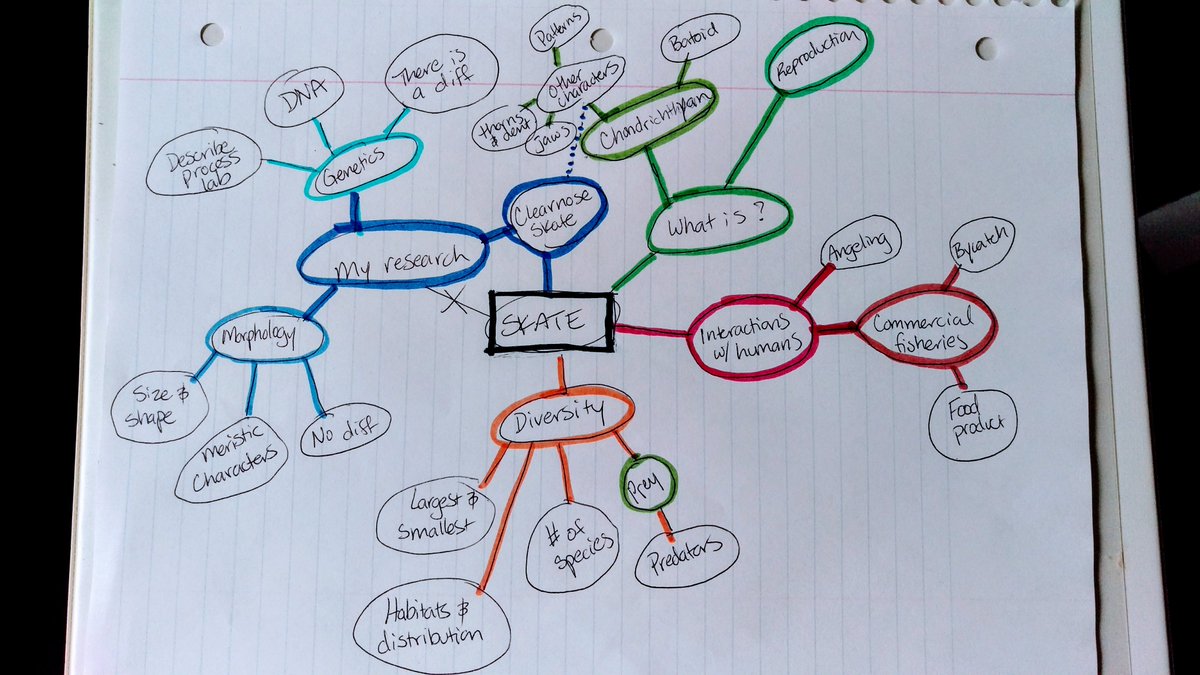 Patterns
Batoid
Reproduction
There is
a diff
DNA
Other
characters
thorns
& dent
jaws
Chondrichthyan
Describe
Process
lab
Genetics
Clearnose
skate
What is ?
My research
Angeling
Bycatch
SKATE
Interactions
w/ humans
Commercial
fisheries
Morphology
Size &
shape
Meristic
Characters
No diff
Diversity
Food
product
Largest &
smallest
# of
species
Prey
Predators
Habitats &
distribution